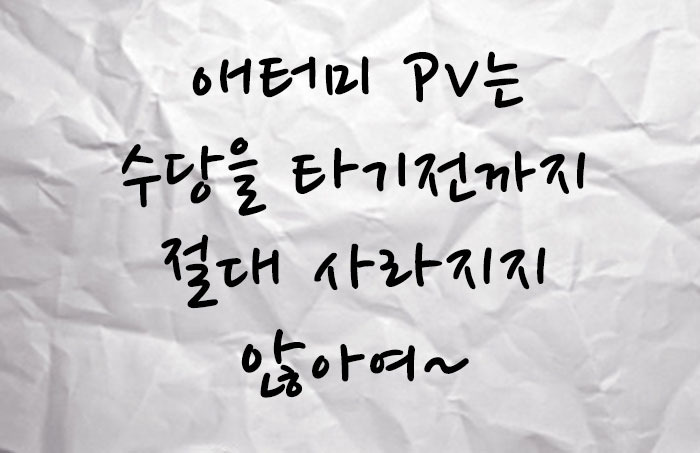 애터미 PV는
수당을 타기전까지
절대 사라지지
않아여~